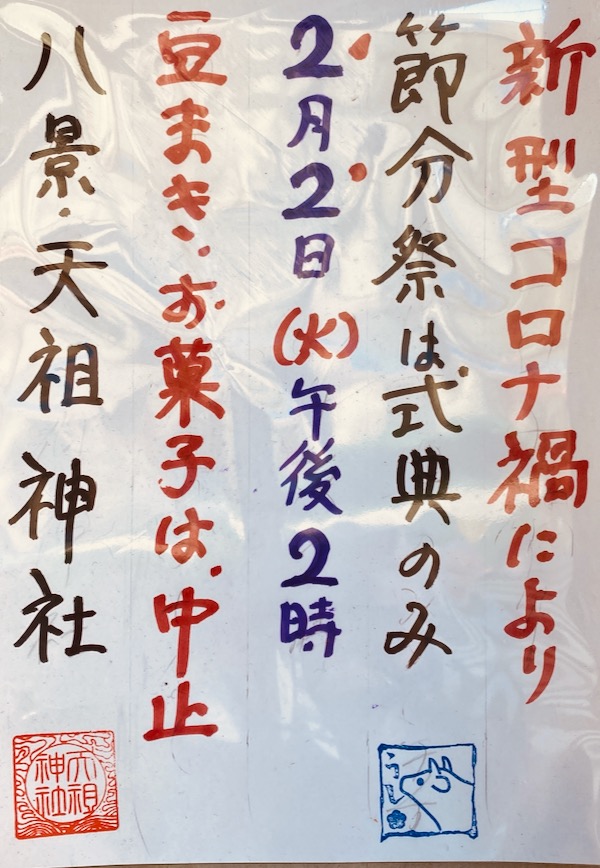 新型コロナ禍により
節分祭は式典のみ
2月2日(火)午後2時
豆まき、お菓子は、中止
八景・天祖神社
うし
天祖
神社